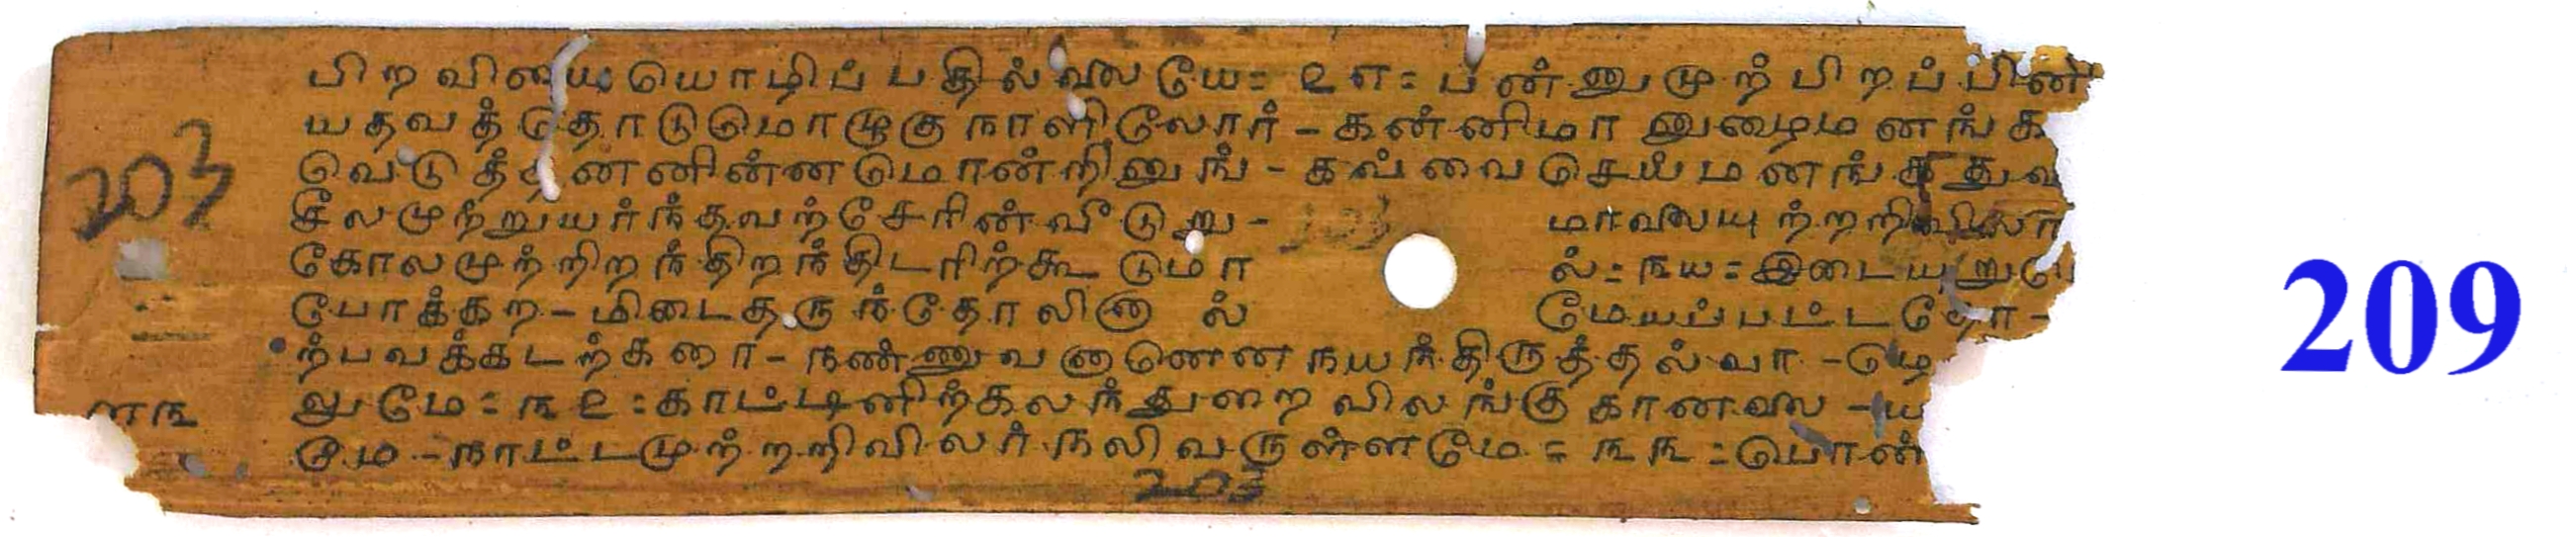 பிறவியை யொழிப்பதில்லையே = ௨௭ = பன்னுமுற்பிறப்பின்
யதவத்தொடுமொழுகு நாளிலோர் - கன்னிமா னுழைமனங்க
வெடுத்தனனின்னமொன்றினுங் - கவ்வைசெய் மனங்கது
சீலமுற்றுயர்ந்தவற்சேரின் வீடுறு - மாலையுற்றறிவிலா
கோலமுற்றிறந்திறந்திடரிற்கூடுமா ல் = ௩௰ = இடையறு
போக்கற - மிடைதருந்தோலினால் மேயப்பட்டதோ -
ற்பவக்கடற்கரை - நண்ணுவனானென நயந்திருத்தல்வா - மெ
னுமே = ௩௨ = காட்டினிற்கலந்துறை விலங்கு கானலை - ய
டும - நாட்டமுற்றறிவிலர் நலிவருள்ளமே = ௩௩ = பொன்
203
203
209